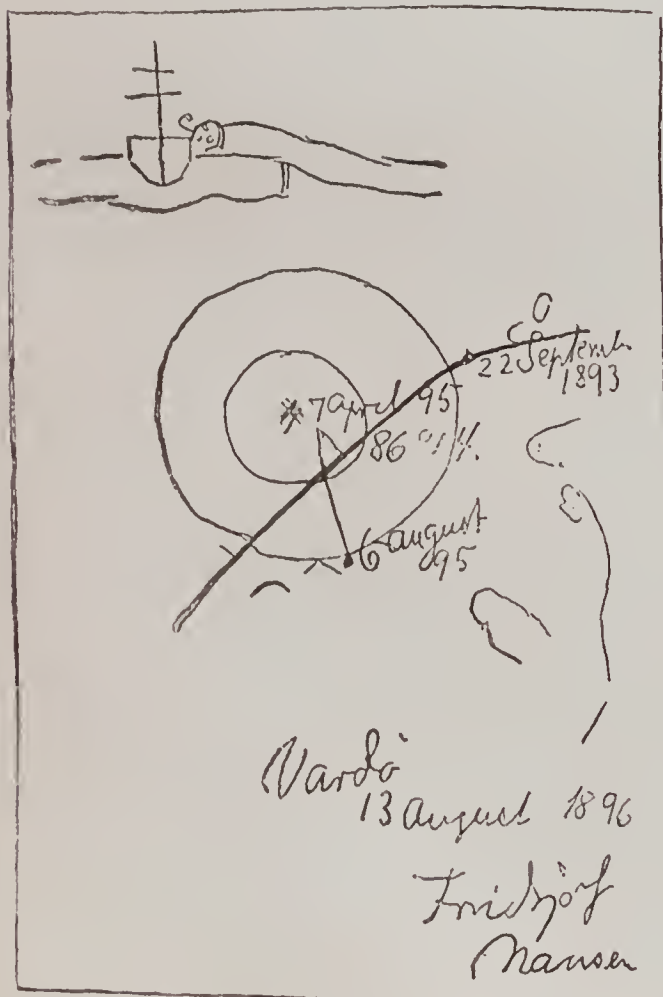 22 Septemb
1893
7 April 95
86°
6 august
95
Vardö
13 august 1896
Fridtjof
Nansen